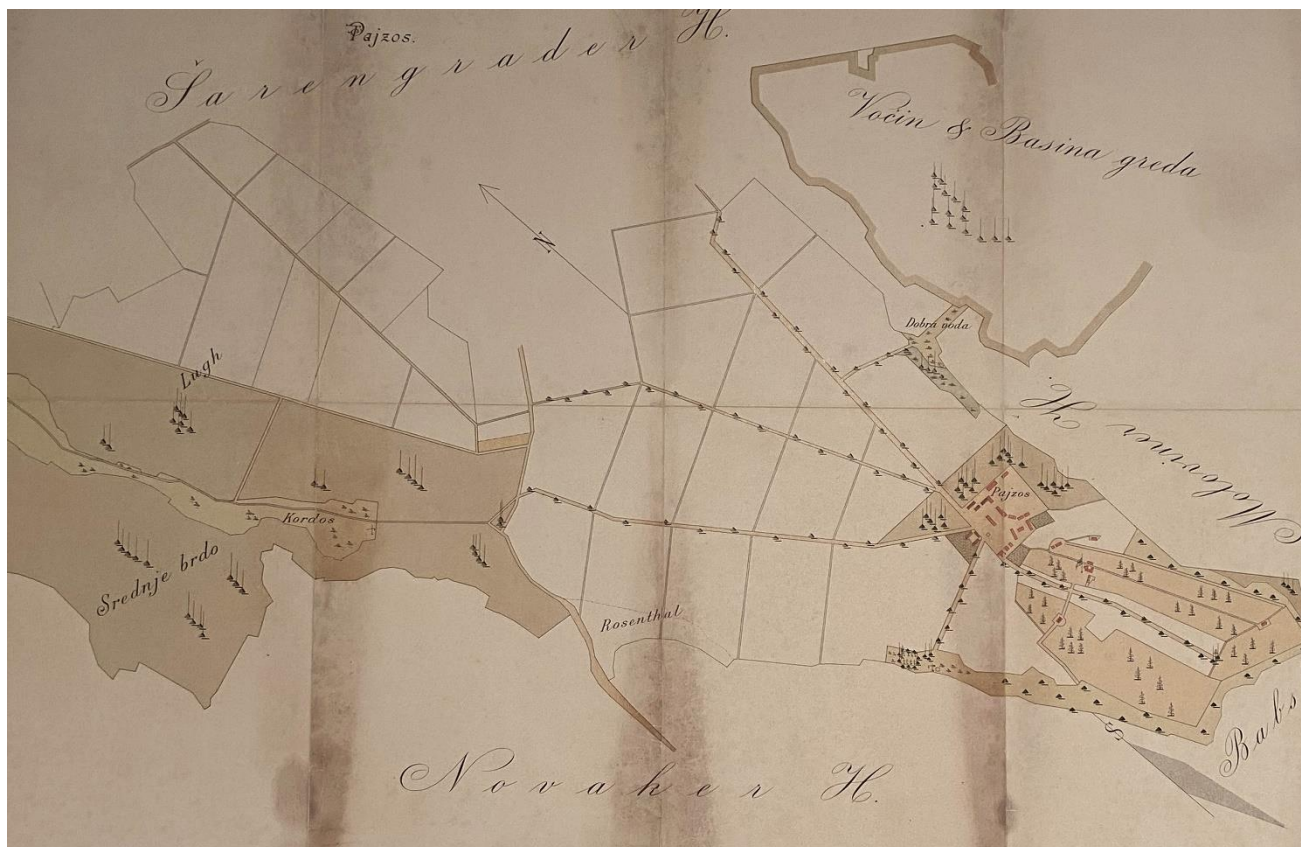 Pajzos.
Šarengrader H.
Voćin & Basina greda
N
Dobra voda
Lugh
Pajzos
Kordos
Srednje brdo
Rosenthal
S
Babs
Novaker H.